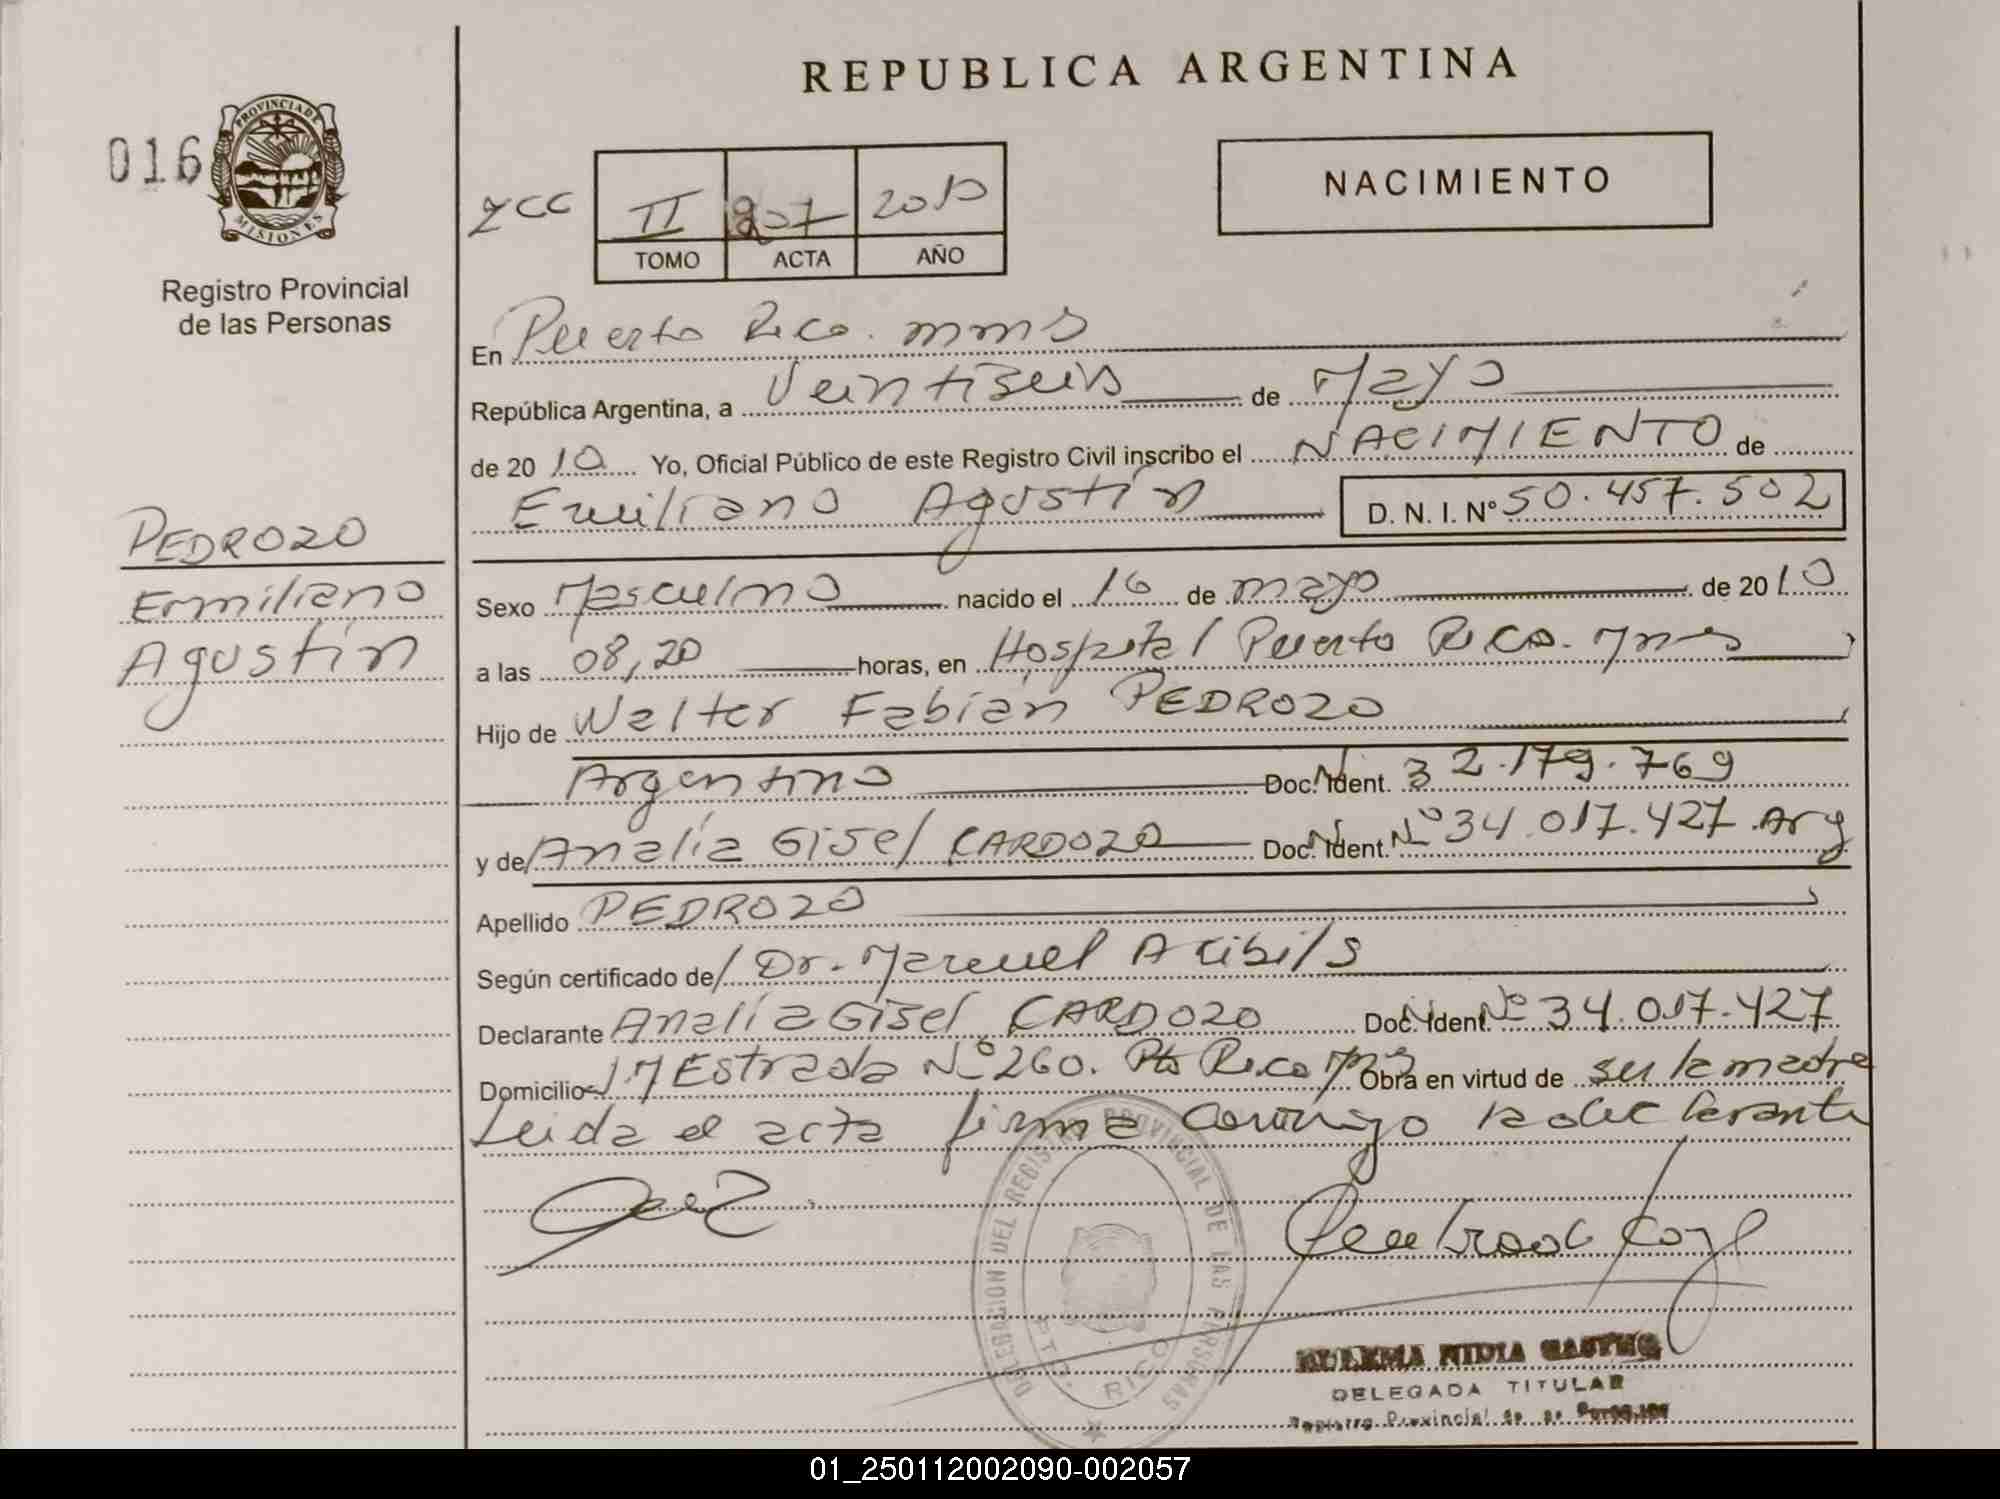 REPUBLICA ARGENTINA
016
PROVINCIA DE
MISIONES
Registro Provincial
de las Personas
II 207 2010
TOMO ACTA AÑO
NACIMIENTO
En Puerto Rico. mnes
República Argentina, a Veintiseis de Mayo
de 2010 Yo, Oficial Público de este Registro Civil inscribo el NACIMIENTO de
Emiliano Agustín D. N. I. Nº 50.457.502
PEDROZO
Emiliano
Agustín
Sexo Masculino nacido el 16 de mayo de 2010
a las 08,20 horas, en Hospital Puerto Rico. Mnes
Hijo de Walter Fabián PEDROZO
Argentino Doc. Ident. 32.179.769
y de Analía Gisel CARDOZO Doc. Ident. Nº 34.017.427. Arg
Apellido PEDROZO
Según certificado de Dr. Manuel
Declarante Analía Gisel CARDOZO Doc. Ident. Nº 34.017.427
Domicilio J.M Estrada Nº 260. Pto Rico Mnes Obra en virtud de ser la madre
Leida el acta firma conmigo la declarante
DELEGACION DEL REGISTRO PROVINCIAL DE LAS PERSONAS
PTO. RICO
ZULEMA NIDIA
DELEGADA TITULAR
Registro Provincial de
01_250112002090-002057